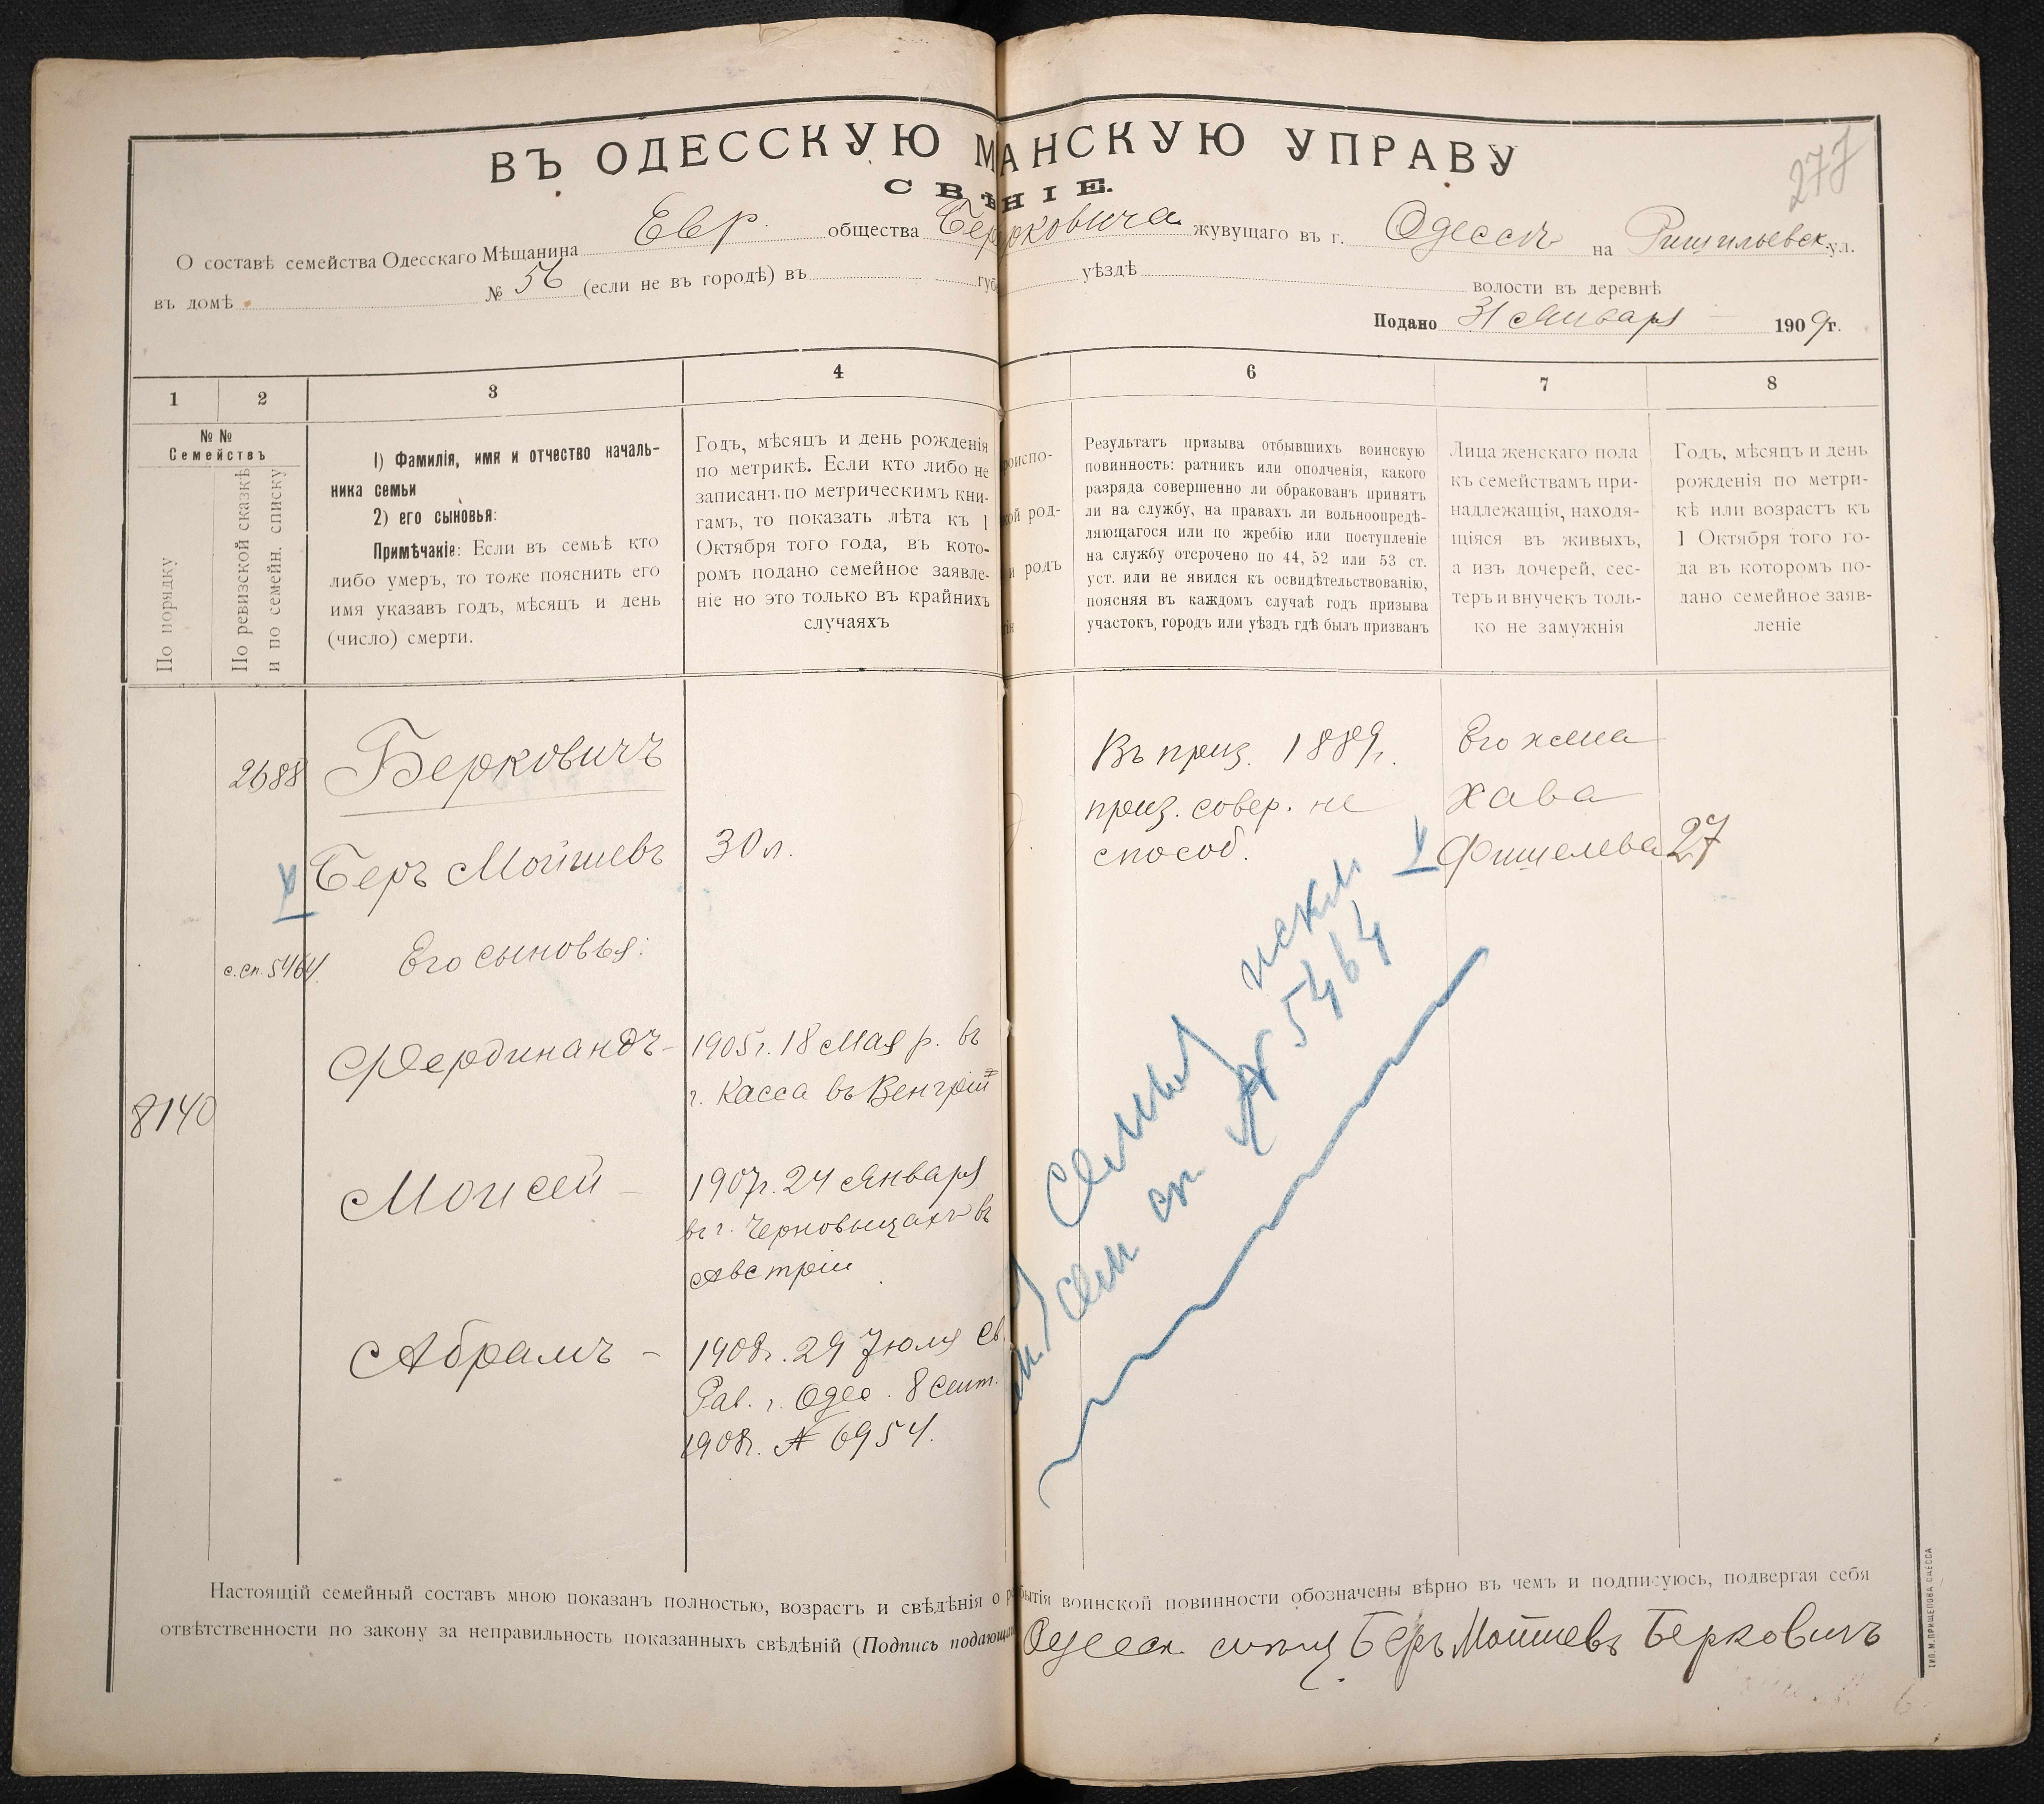 ВЪ ОДЕССКУЮ М АНСКУЮ УПРАВУ
СВѢ НІЕ.
277
О составѣ семейства Одесскаго Мѣщанина Евр. общества Берковича жувущаго въ г. Одессѣ на Ришильевск. ул.
въ домѣ № 56 (если не въ городѣ) въ губ уѣздѣ волости въ деревнѣ
Подано 31 Января 1909 г.
1 2 3 4 6 7 8
№ №
Семействъ
По порядку
По ревизской сказкѣ
и по семейн. списку
1) Фамилія, имя и отчество началь-
ника семьи
2) его сыновья:
Примѣчаніе: Если въ семьѣ кто
либо умеръ, то тоже пояснить его
имя указавъ годъ, мѣсяцъ и день
(число) смерти.
Годъ, мѣсяцъ и день рожденія
по метрикѣ. Если кто либо не
записанъ по метрическимъ кни-
гамъ, то показать лѣта къ 1
Октября того года, въ кото-
ромъ подано семейное заявле-
ніе но это только въ крайнихъ
случаяхъ
роиспо-
кой род-
и родъ
Результатъ призыва отбывшихъ воинскую
повинность: ратникъ или ополченія, какого
разряда совершенно ли обракованъ принятъ
ли на службу, на правахъ ли вольноопредѣ-
ляющагося или по жребію или поступленіе
на службу отсрочено по 44, 52 или 53 ст.
уст. или не явился къ освидѣтельствованію,
поясняя въ каждомъ случаѣ годъ призыва
участокъ, городъ или уѣздъ гдѣ былъ призванъ
Лица женскаго пола
къ семействамъ при-
надлежащія, находя-
щіяся въ живыхъ,
а изъ дочерей, сес-
теръ и внучекъ толь-
ко не замужнія
Годъ, мѣсяцъ и день
рожденія по метри-
кѣ или возрастъ къ
1 Октября того го-
да въ которомъ по-
дано семейное заяв-
леніе
2688
Берковичъ
Беръ Мойшевъ
30 л.
Въ приз. 1889 г.
приз. совер. не
способ.
Его жена
Хава
Фишелева 27
с.сп. 5464.
Его сыновья:
Фердинандъ -
1905 г. 18 Мая р. въ
г. Касса въ Венгріи
8140
Моисей -
1907 г. 24 Января
въ г. Черновыцахъ въ
Австріи
Абрамъ -
1908 г. 29 Іюля св.
Рав. г. Одес. 8 Сент.
1908 г. № 6954.
сем сп. № 5464
Настоящій семейный составъ мною показанъ полностью, возрастъ и свѣдѣнія о бытія воинской повинности обозначены вѣрно въ чемъ и подписуюсь, подвергая себя
отвѣтственности по закону за неправильность показанныхъ свѣдѣній (Подпись подающа Одесск. мѣщ. Беръ Мойшевъ Берковичъ
ТИП. М. ПРИЩЕПОВА ОДЕССА